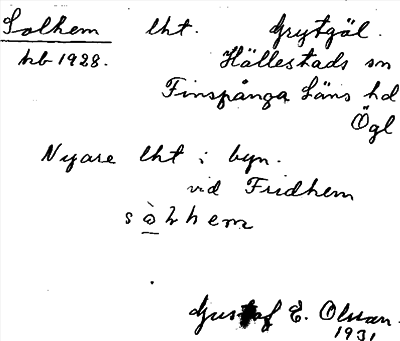 Solhem lht. Grytgöl.
kb 1928. Hällestads sn
Finspånga Läns hd
Ögl
Nyare lht i byn.
vid Fridhem
hem
Gustaf E. Olsson.
1931